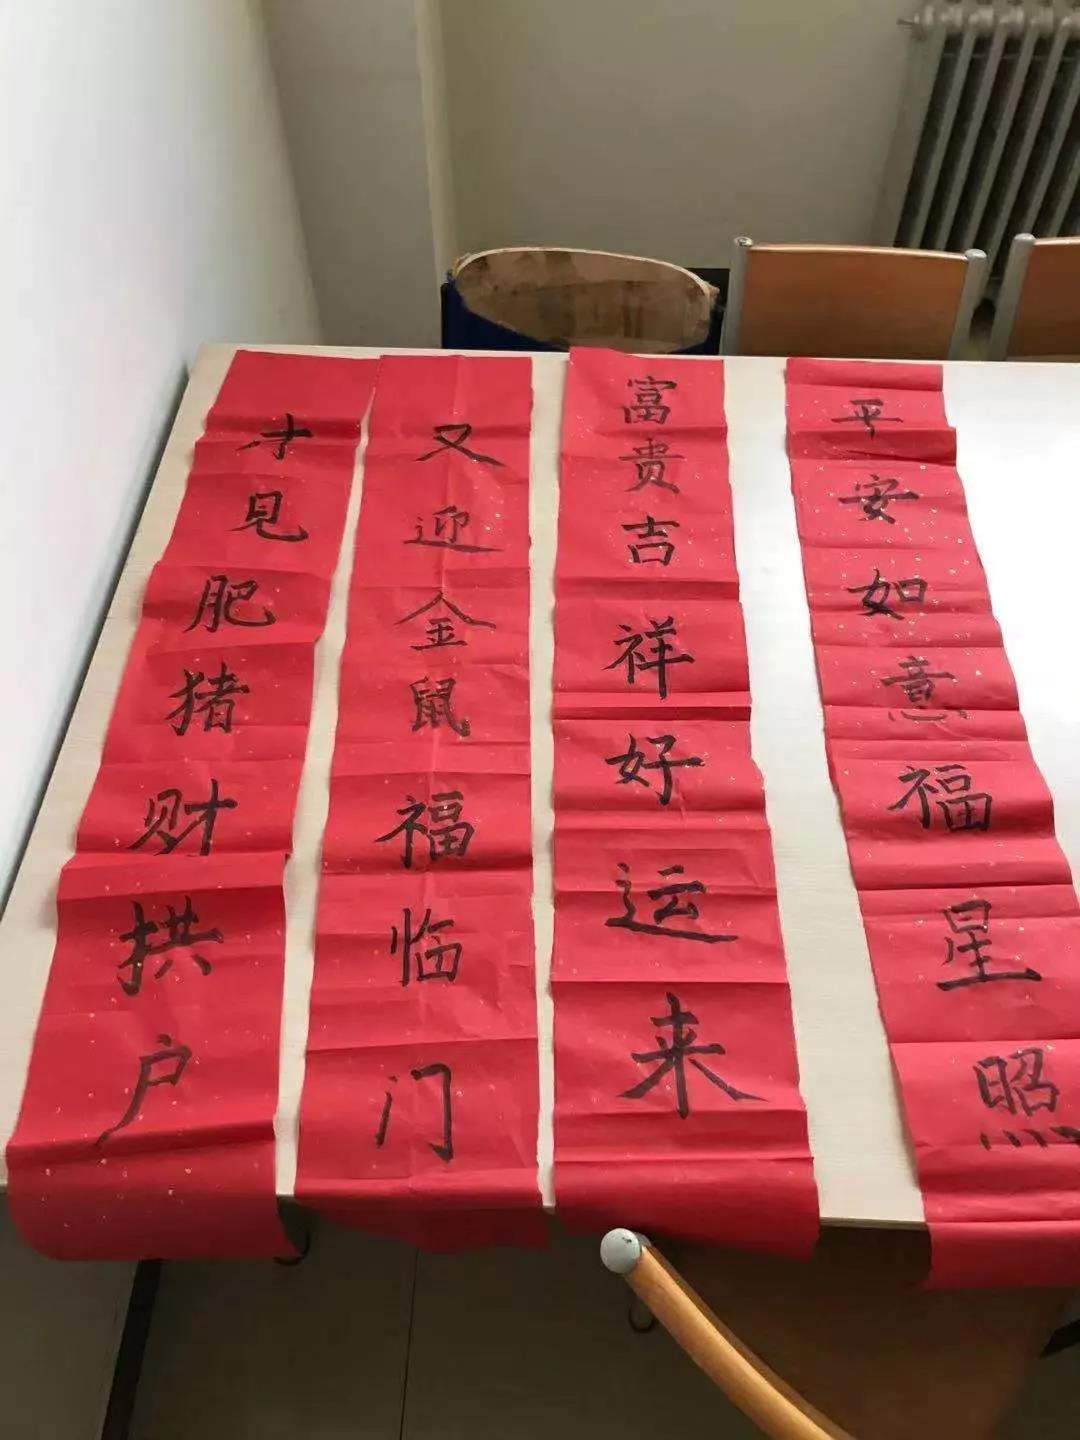 才见肥猪财拱户
又迎金鼠福临门
富贵吉祥好运来
平安如意福星照